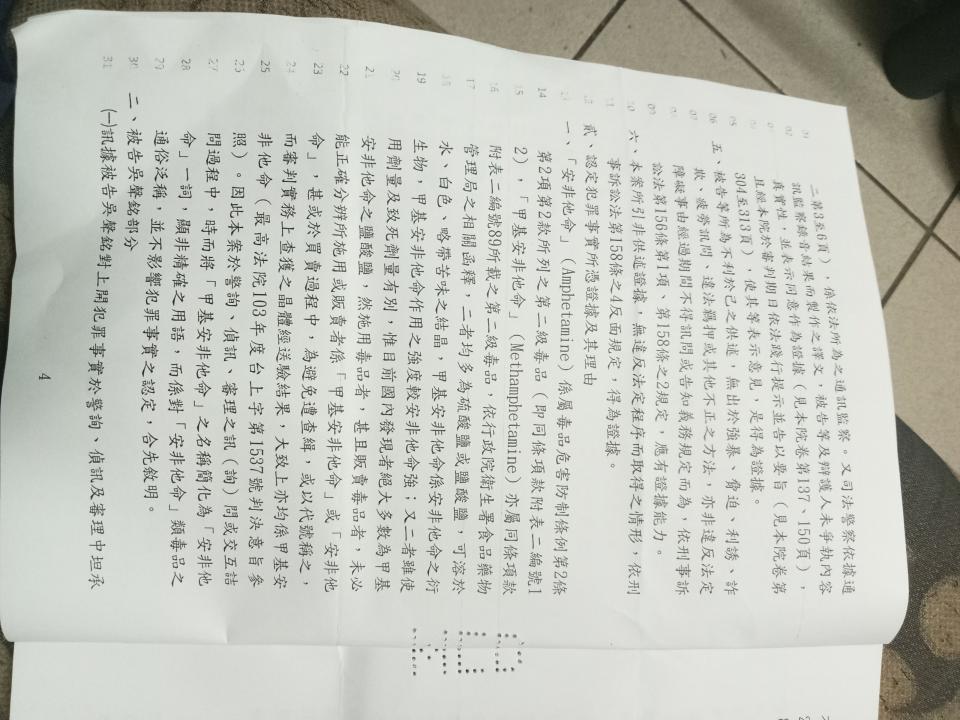 二第3至6頁），係依法所為之通訊監察。又司法警察依據通
訊監察錄音結果而製作之譯文，被告等及辯護人未爭執內容
真實性，並表示同意作為證據（見本院卷第137、150頁），
且經本院於審判期日依法踐行提示並告以要旨（見本院卷第
304至313頁），使其等表示意見，是得為證據。
五、被告等所為不利於己之供述，無出於強暴、脅迫、利誘、詐
欺、疲勞訊問、違法羈押或其他不正之方法，亦非違反法定
障礙事由經過期間不得訊問或告知義務規定而為，依刑事訴
訟法第156條第1項、第158條之2規定，應有證據能力。
六、本案所引非供述證據，無違反法定程序而取得之情形，依刑
事訴訟法第158條之4反面規定，得為證據。
貳、認定犯罪事實所憑證據及其理由
一、「安非他命」（Amphetamine）係屬毒品危害防制條例第2條
第2項第2款所列之第二級毒品（即同條項款附表二編號1
2），「甲基安非他命」（Methamphetamine）亦屬同條項款
附表二編號89所載之第二級毒品，依行政院衛生署食品藥物
管理局之相關函釋，二者均多為硫酸鹽或鹽酸鹽，可溶於
水、白色、略帶苦味之結晶，甲基安非他命係安非他命之衍
生物，甲基安非他命作用之強度較安非他命強；又二者雖使
用劑量及致死劑量有別，惟目前國內發現者絕大多數為甲基
安非他命之鹽酸鹽。然施用毒品者，甚且販賣毒品者，未必
能正確分辨所施用或販賣者係「甲基安非他命」或「安非他
命」，甚或於買賣過程中，為避免遭查緝，或以代號稱之，
而審判實務上查獲之晶體經送驗結果，大致上亦均係甲基安
非他命（最高法院103年度台上字第1537號判決意旨參
照）。因此本案於警詢、偵訊、審理之訊（詢）問或交互詰
問過程中，時而將「甲基安非他命」之名稱簡化為「安非他
命」一詞，顯非精確之用語，而係對「安非他命」類毒品之
通俗泛稱，並不影響犯罪事實之認定，合先敘明。
二、被告吳聲銘部分
(一)訊據被告吳聲銘對上開犯罪事實於警詢、偵訊及審理中坦承
4